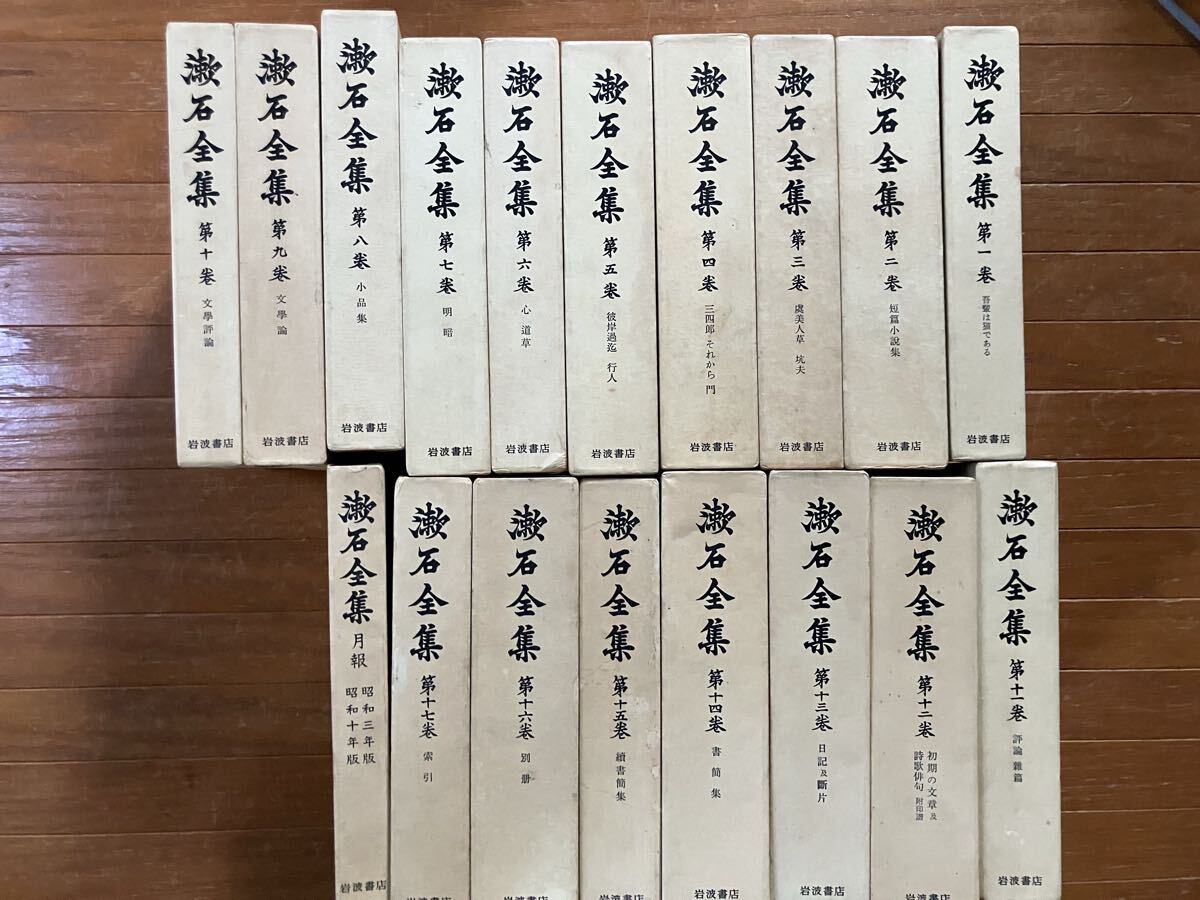 漱石全集
第一卷
吾輩は猫である
岩波書店
漱石全集
第二卷
短篇小說集
岩波書店
漱石全集
第三卷
虞美人草 坑夫
岩波書店
漱石全集
第四卷
三四郎 それから 門
岩波書店
漱石全集
第五卷
彼岸過迄 行人
岩波書店
漱石全集
第六卷
心 道草
岩波書店
漱石全集
第七卷
明暗
岩波書店
漱石全集
第八卷
小品集
岩波書店
漱石全集
第九卷
文學論
岩波書店
漱石全集
第十卷
文學評論
岩波書店
漱石全集
第十一卷
評論 雜篇
岩波書店
漱石全集
第十二卷
初期の文章及
詩歌俳句 附印譜
岩波書店
漱石全集
第十三卷
日記及斷片
岩波書店
漱石全集
第十四卷
書簡集
岩波書店
漱石全集
第十五卷
續書簡集
岩波書店
漱石全集
第十六卷
別册
岩波書店
漱石全集
第十七卷
索引
岩波書店
漱石全集
月報
昭和三年版
昭和十年版
岩波書店